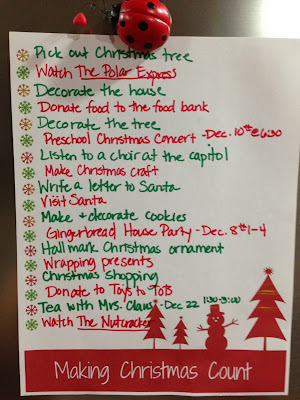 Pick out Christmas tree
Watch The Polar Express
Decorate the house
Donate food to the food bank
Decorate the tree
Preschool Christmas Concert - Dec. 10th @ 6:30
Listen to a choir at the capitol
Make Christmas craft
Write a letter to Santa
Visit Santa
Make + decorate cookies
Gingerbread House Party - Dec. 8th 1-4
Hallmark Christmas ornament
Wrapping presents
Christmas shopping
Donate to Toys to Tots
Tea with Mrs. Claus - Dec 22 1:30-3:00)
Watch The Nutcracker
Making Christmas Count